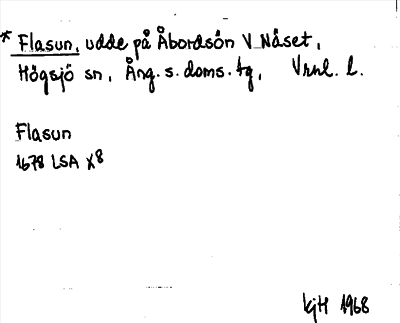 * Flasun, udde på Åbordsön V Nåset,
Högsjö sn, Ång. s. doms. tg, Vrnl. l.
Flasun
1678 LSA X8
KjH 1968